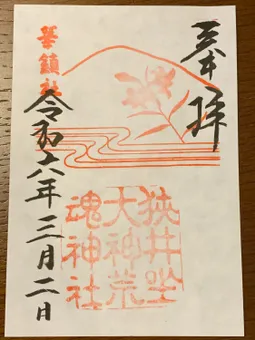 奉拝
華鎮社
狭井坐
大神荒
魂神社
令和六年三月二日